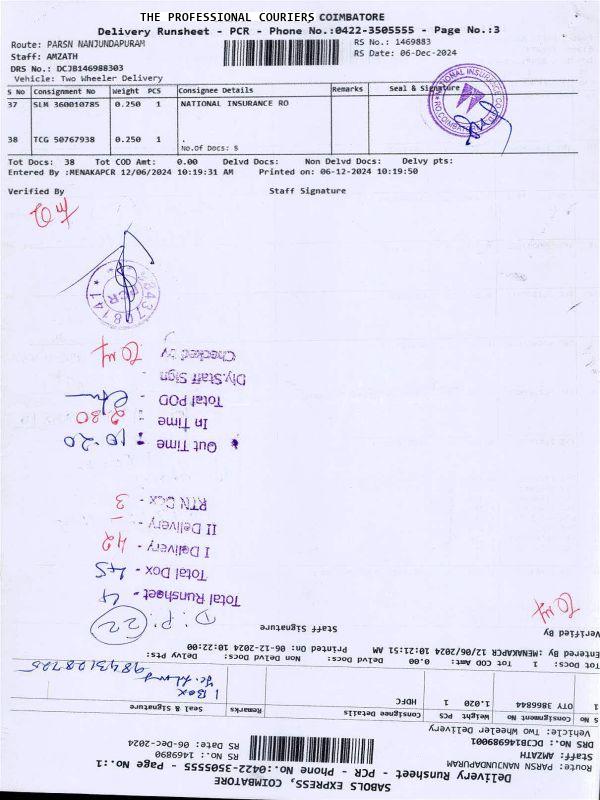 THE PROFESSIONAL COURIERS COIMBATORE
Delivery Runsheet - PCR - Phone No.:0422-3505555 - Page No.:3
Route: PARSN NANJUNDAPURAM
RS No.: 1469883
Staff: AMZATH
RS Date: 06-Dec-2024
DRS No.: DCJB146988303
Vehicle: Two Wheeler Delivery
S No Consignment No Weight PCS Consignee Details Remarks Seal & Signature
37 SLM 360010785 0.250 1 NATIONAL INSURANCE RO
38 TCG 50767938 0.250 1 .
No.Of Docs: S
Tot Docs: 38 Tot COD Amt: 0.00 Delvd Docs: Non Delvd Docs: Delvy pts:
Entered By :MENAKAPCR 12/06/2024 10:19:31 AM Printed on: 06-12-2024 10:19:50
Verified By Staff Signature
SABOLS EXPRESS, COIMBATORE
Delivery Runsheet - PCR - Phone No.:0422-3505555 - Page No.:1
Route: PARSN NANJUNDAPURAM
RS No.: 1469890
Staff: AMZATH
RS Date: 06-Dec-2024
DRS No.: DCJB146989001
Vehicle: Two Wheeler Delivery
S No Consignment No Weight PCS Consignee Details Remarks Seal & Signature
1 OTY 3866844 1.020 1 HDFC
1 Box
9843128725
Tot Docs: 1 Tot COD Amt: 0.00 Delvd Docs: Non Delvd Docs: Delvy Pts:
Entered By :MENAKAPCR 12/06/2024 10:21:51 AM Printed On: 06-12-2024 10:22:00
Verified By Staff Signature
D.P: 22
Total Runsheet - 4
Total Dox - 45
I Delivery - 42
II Delivery -
RTN Dox - 3
Out Time : 10.20
In Time : 2.30
Total POD -
Dly.Staff Sign -
Checked by